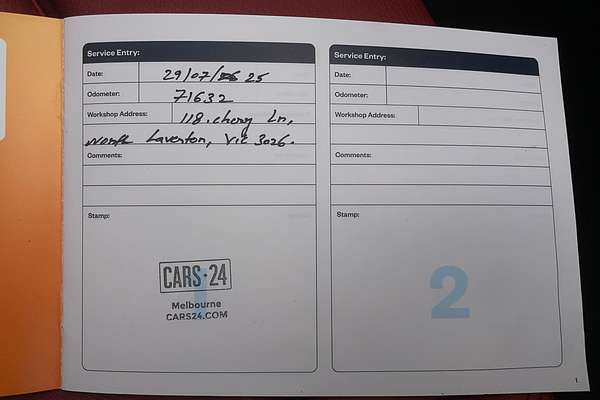 Service Entry:
Date: 29/07/25
Odometer: 71632
Workshop Address: 118. Cherry Ln,
North Laverton, Vic 3026.
Comments:
Stamp:
CARS·24
1
Melbourne
CARS24.COM
Service Entry:
Date:
Odometer:
Workshop Address:
Comments:
Stamp:
2
1